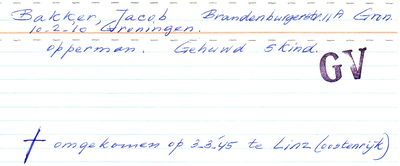 Bakker, Jacob Brandenburgerstr. 11A Grn.
10-2-10 Groningen.
opperman. Gehuwd 5 kind.
GV
† omgekomen op 3-3-'45 te Linz (oostenrijk)